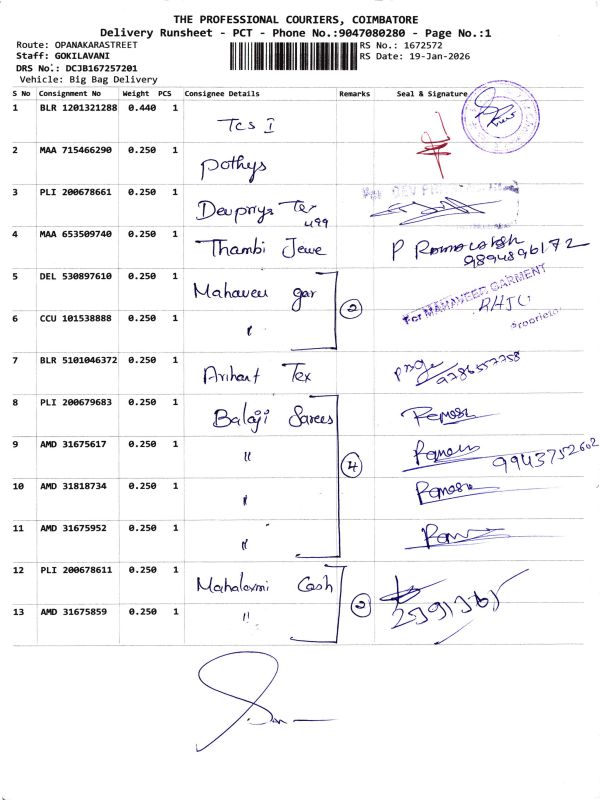 THE PROFESSIONAL COURIERS, COIMBATORE
Delivery Runsheet - PCT - Phone No.:9047080280 - Page No.:1
Route: OPANAKARASTREET
Staff: GOKILAVANI
DRS No.: DCJB167257201
Vehicle: Big Bag Delivery
RS No.: 1672572
RS Date: 19-Jan-2026
S No Consignment No Weight PCS Consignee Details Remarks Seal & Signature
1 BLR 1201321288 0.440 1 Tcs I
2 MAA 715466290 0.250 1 pothys
3 PLI 200678661 0.250 1 Devpriya Tex
499
4 MAA 653509740 0.250 1 Thambi Jewe
9894896172
5 DEL 530897610 0.250 1 Mahaveer gar
2
For MAHAVEER GARMENT
Proprietor
6 CCU 101538888 0.250 1 "
7 BLR 5101046372 0.250 1 Arihant Tex
9786557758
8 PLI 200679683 0.250 1 Balaji Sarees
9 AMD 31675617 0.250 1 "
4
9943752602
10 AMD 31818734 0.250 1 "
11 AMD 31675952 0.250 1 "
12 PLI 200678611 0.250 1 Mahalaxmi Cash
2
13 AMD 31675859 0.250 1 "